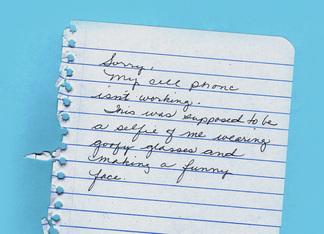 Sorry,
My cell phone
isn't working.
This was supposed to be
a selfie of me wearing
goofy glasses and
making a funny
face.